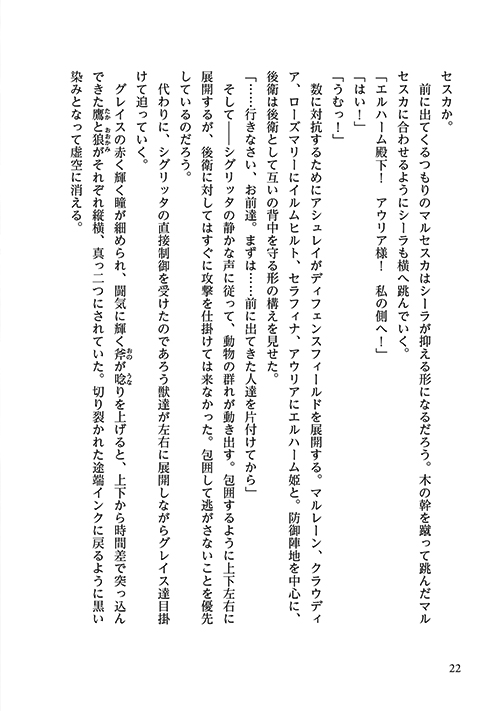 セスカか。
　前に出てくるつもりのマルセスカはシーラが抑える形になるだろう。木の幹を蹴って跳んだマル
セスカに合わせるようにシーラも横へ跳んでいく。
「エルハーム殿下！　アウリア様！　私の側へ！」
「はい！」
「うむっ！」
　数に対抗するためにアシュレイがディフェンスフィールドを展開する。マルレーン、クラウディ
ア、ローズマリーにイルムヒルト、セラフィナ、アウリアにエルハーム姫と。防御陣地を中心に、
後衛は後衛として互いの背中を守る形の構えを見せた。
「……行きなさい、お前達。まずは……前に出てきた人達を片付けてから」
　そして――シグリッタの静かな声に従って、動物の群れが動き出す。包囲するように上下左右に
展開するが、後衛に対してはすぐに攻撃を仕掛けては来なかった。包囲して逃がさないことを優先
しているのだろう。
　代わりに、シグリッタの直接制御を受けたのであろう獣達が左右に展開しながらグレイス達目掛
けて迫っていく。
　グレイスの赤く輝く瞳が細められ、闘気に輝く斧が唸りを上げると、上下から時間差で突っ込ん
できた鷹と狼がそれぞれ縦横、真っ二つにされていた。切り裂かれた途端インクに戻るように黒い
染みとなって虚空に消える。
22